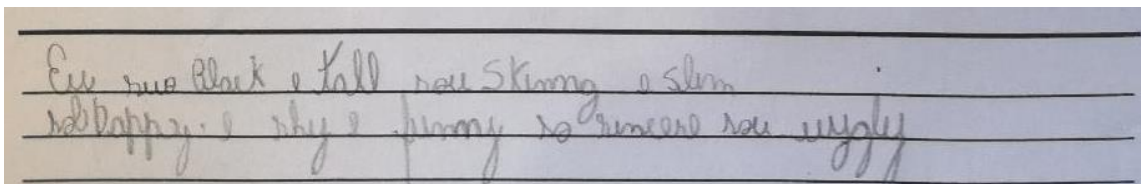 Eu suo Black e tall sou Skinng e slim
so happy. e shy e funny so sincere sou uygly